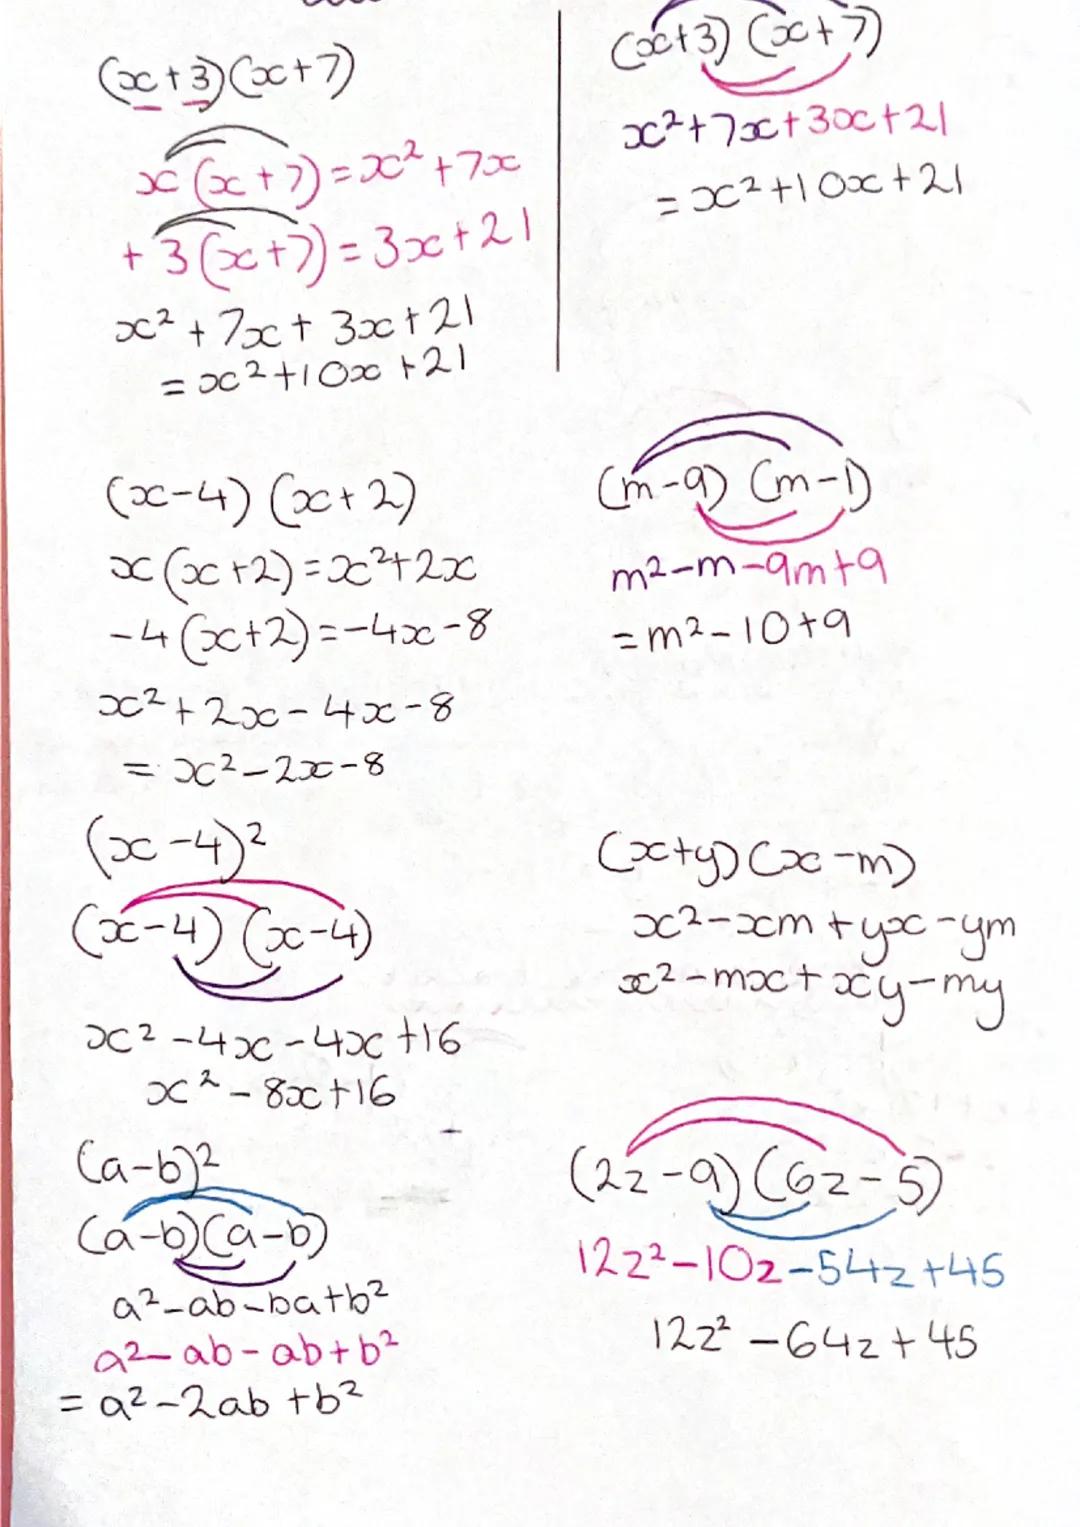 (x+3)(x+7)
x(x+7)=x²+7x
+3(x+7)=3x+21
x²+7x+3x+21
=x²+10x+21
(x+3)(x+7)
x²+7x+3x+21
=x²+10x+21
(x-4)(x+2)
x(x+2)=x²+2x
-4(x+2)=-4x-8
x²+2x-4x-8
=x²-2x-8
(m-9)(m-1)
m²-m-9m+9
=m²-10+9
(x-4)²
(x-4)(x-4)
x²-4x-4x+16
x²-8x+16
(x+y)(x-m)
x²-xm+yx-ym
x²-mx+xy-my
(a-b)²
(a-b)(a-b)
a²-ab-ba+b²
a²-ab-ab+b²
=a²-2ab+b²
(2z-9)(6z-5)
12z²-10z-54z+45
12z²-64z+45